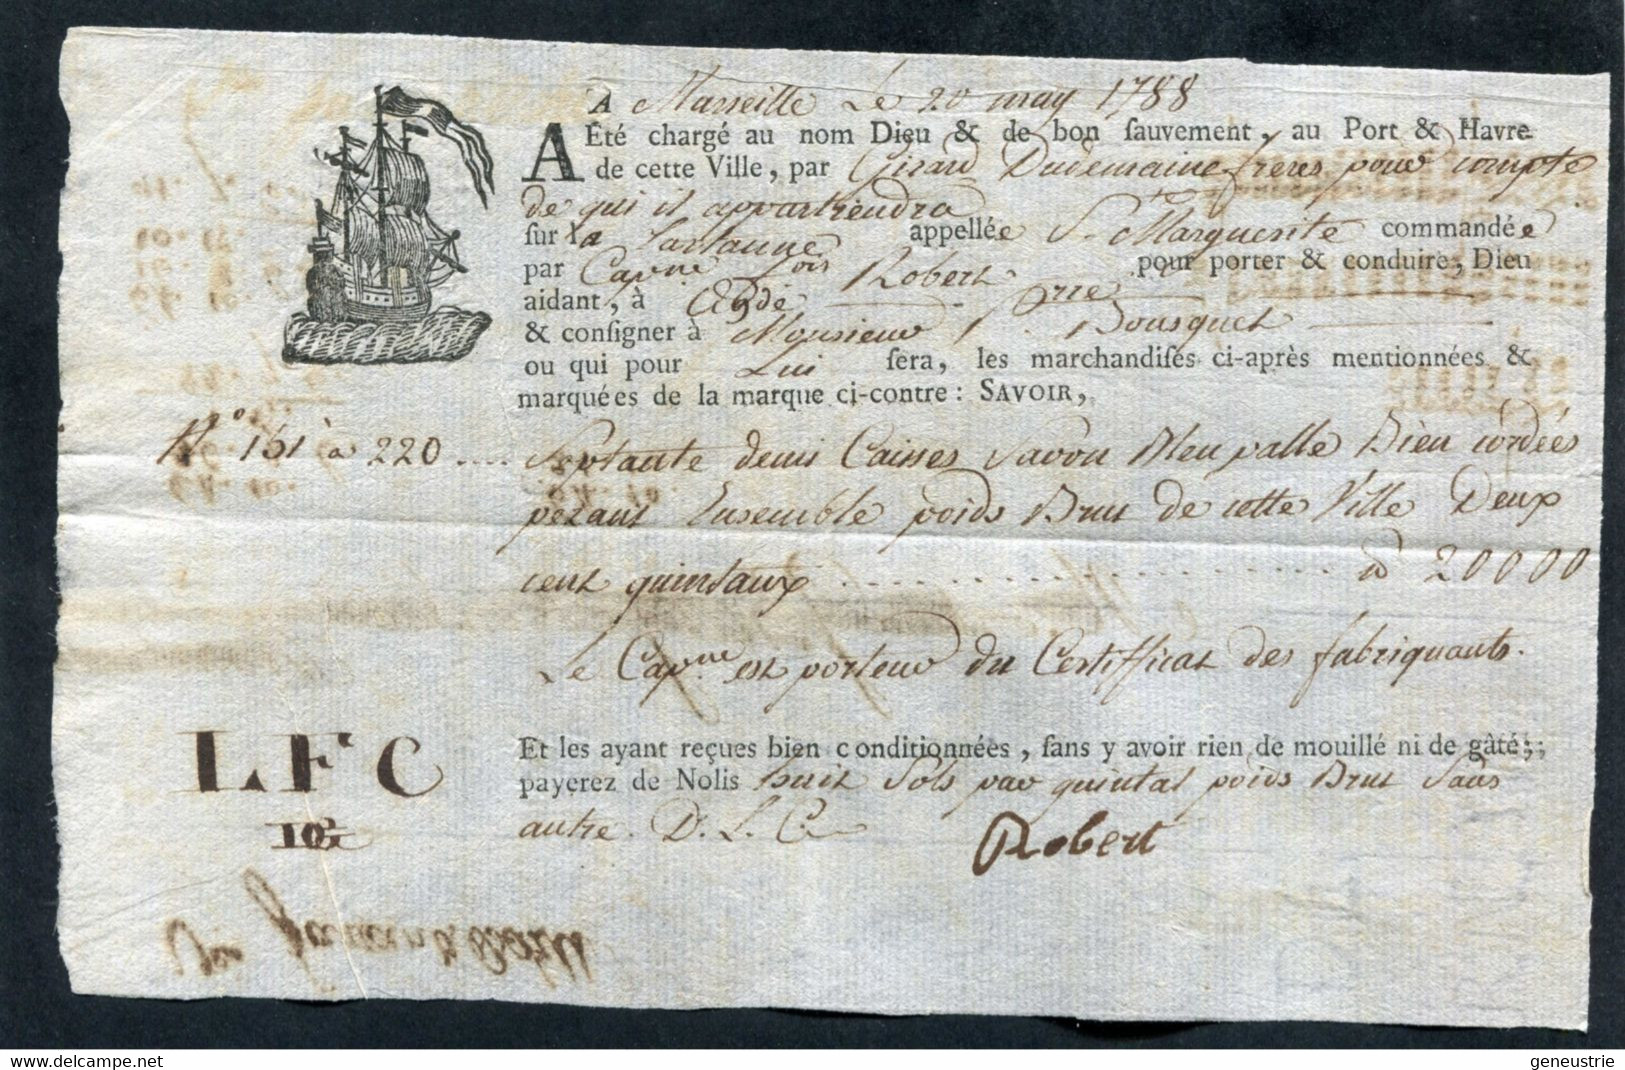 A Marseille Le 20 may 1788
A Été chargé au nom Dieu & de bon sauvement, au Port & Havre
de cette Ville, par Girard Dudemaine freres pour compte
de qui il appartiendra
sur la Tartanne appellée Ste Marguerite commandée
par Capne Lois Robert pour porter & conduire, Dieu
aidant, à Agde
& consigner à Monsieur Prre Bousquet
ou qui pour Lui sera, les marchandises ci-après mentionnées &
marquées de la marque ci-contre : SAVOIR,
No 151 à 220 .... Septante demi Caisses Savon Bleu palle Bien cordées
pezant Ensemble poids Brut de cette Ville Deux
cent quintaux ........ 20000
Le Capne est porteur du Certifficat des fabriquants.
LFC
Et les ayant reçues bien conditionnées, sans y avoir rien de mouillé ni de gâté;
payerez de Nolis huit Sols par quintal poids Brut Sans
autre. D. L. C.
Robert
delcampe.net
geneustrie